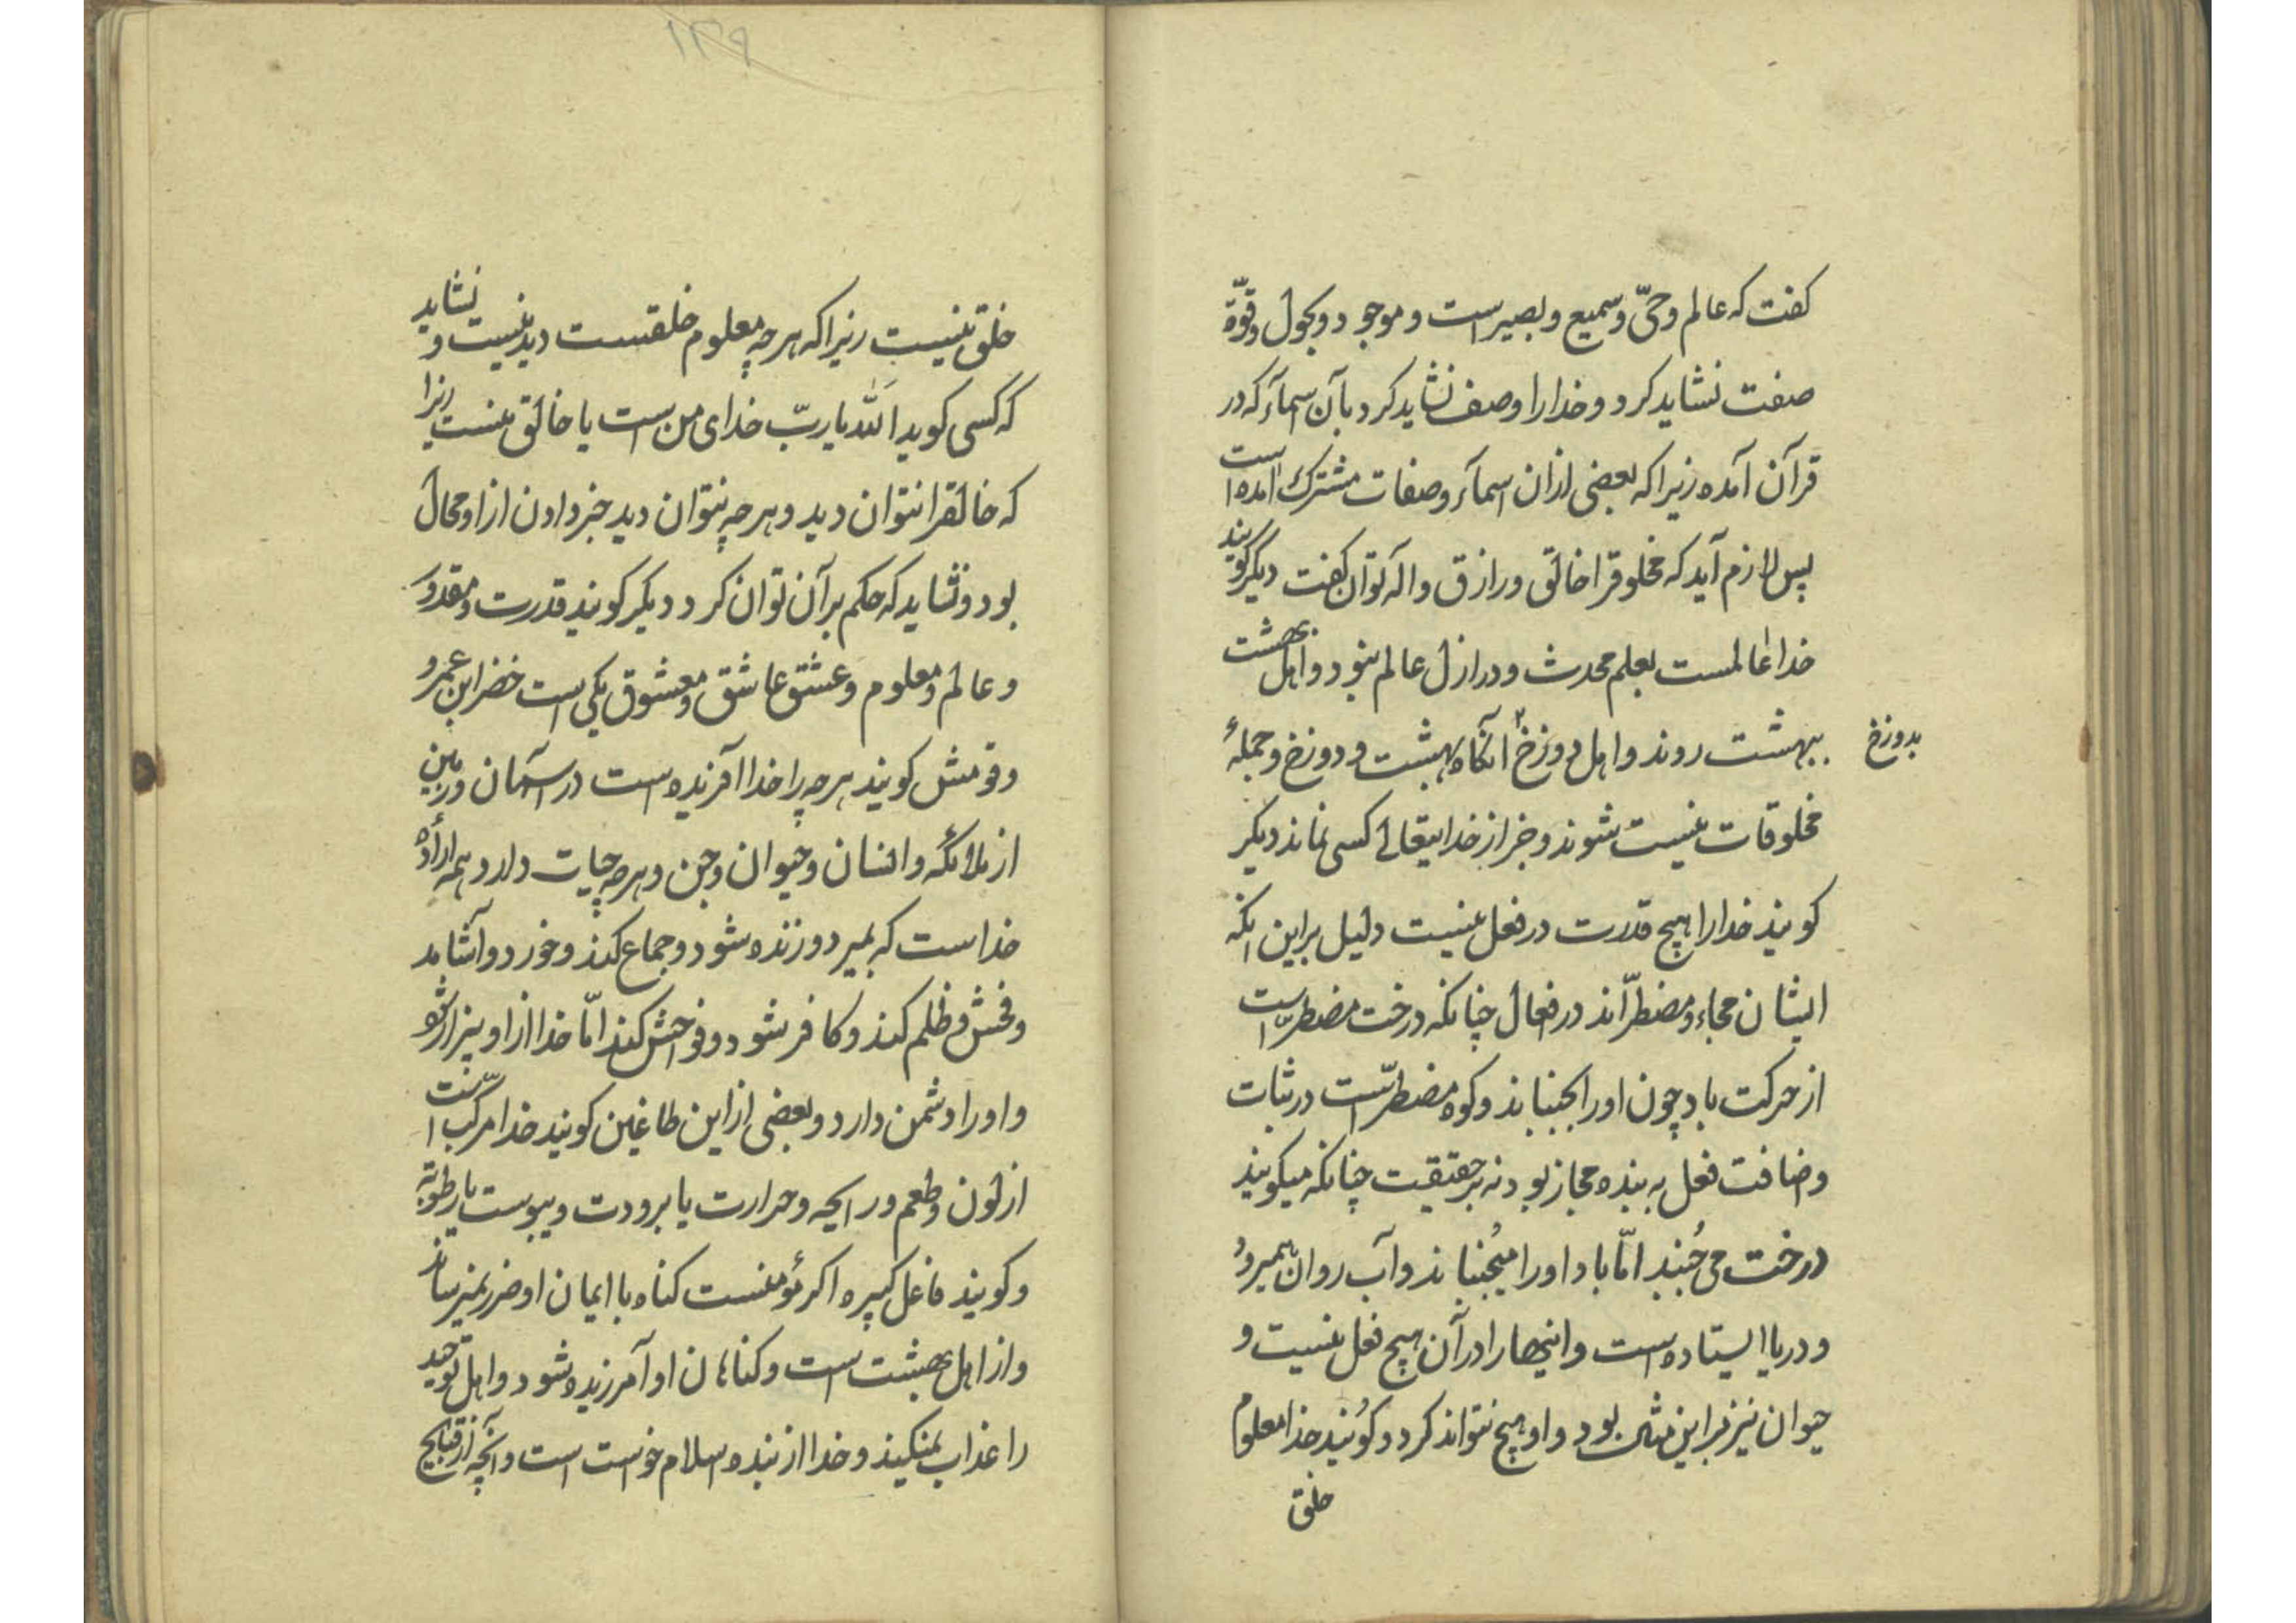 کفت که عالم و حیّ و سمیع و بصیر است و موجود و بحول و قوّة
صفت نشاید کرد و خدارا وصف نشاید کرد بآن اسمآء که در
قرآن آمده زیرا که بعضی ازان اسمآء و صفات مشترک آمده است
پس لازم آید که مخلوقرا خالق و رازق و اله توان کفت دیکر کویند
خدا عالمست بعلم محدث و در ازل عالم نبود و اهل بهشت
ببهشت روند و اهل دوزخ آنکاه بهشت و دوزخ و جملهٔ
بدوزخ
مخلوقات نیست شوند و جز از خدایتعالی کسی نماند دیکر
کویند خدارا هیچ قدرت در فعل نیست دلیل براین آنکه
ایشان مجاء و مضطرّاند در فعال چنانکه درخت مضطرّ است
از حرکت باد چون اورا بجنباند و کوه مضطرّ است در ثبات
وضافت فعل به بنده مجاز بود نه بر حقیقت چنانکه میکویند
درخت می جُنبد امّا باد اورا میجُنباند و آب روان همیرود
و دریا ایستاده است و اینهارا در آن هیچ فعل نیست و
حیوان نیز براین مثال بود و او هیچ نتواند کرد و کوُیند خدا معلوم
خلق
۱۳۹
خلق نیست زیرا که هر چه معلوم خلقست دیدنیست و نشاید
که کسی کوید اللّه یا ربّ خدای من است یا خالق نیست زیرا
که خالقرا نتوان دید و هر چه نتوان دید خبر دادن از او محال
بود و نشاید که حکم بر آن توان کرد دیکر کویند قدرت و مقدور
و عالم و معلوم و عشق عاشق و معشوق یکی است خضر ابن عمرو
و قومش کویند هر چه را خدا آفریده است در آسمان و زمین
از ملائکه و انسان و حیوان و جن و هر چه حیات دارد همه ارادهٔ
خداست که بمیرد و زنده شود و جماع کند و خورد و آشامد
و فحش و ظلم کند و کافر شود و فواحش کند امّا خدا از او بیزار شود
و اورا دشمن دارد و بعضی از این طاغین کویند خدا مرکّب است
از لون و طعم و رایحه و حرارت یا برودت و یبوست یا رطوبة
و کویند فاعل کبیره اکر مؤمنست کناه با ایمان او ضرر نمیرساند
و از اهل بهشت است و کناهان او آمرزیده شود و اهل توحید
را عذاب نمیکنند و خدا از بنده اسلام خواست است و آنچه از قبایح